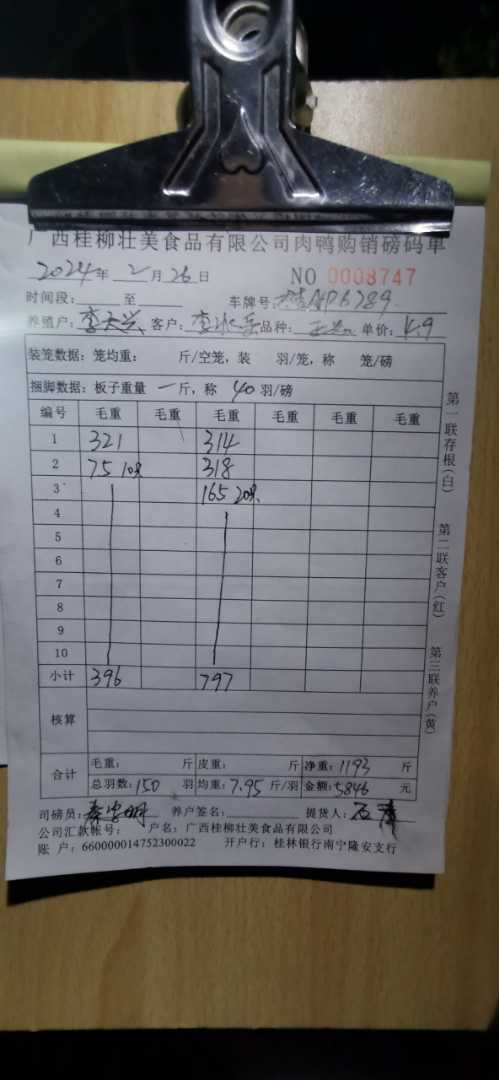 广西桂柳壮美食品有限公司肉鸭购销磅码单
2024年 2月26日 NO 0008747
时间段: 至 车牌号: AP6789
养殖户: 李天兴 客户: 李 品种: 单价: 4.9
装笼数据: 笼均重: 斤/空笼, 装 羽/笼, 称 笼/磅
捆脚数据: 板子重量 一斤, 称 40 羽/磅
编号 毛重 毛重 毛重 毛重 毛重 毛重
1 321 314
2 75 10只 318
3 165 20只
4
5
6
7
8
9
10
小计 396 797
核算
合计 毛重: 斤 皮重: 斤 净重: 1193 斤
总羽数: 150 羽 均重: 7.95 斤/羽 金额: 5846 元
司磅员: 养户签名: 提货人: 石
公司汇款帐号: 户名: 广西桂柳壮美食品有限公司
账 户: 660000014752300022 开户行: 桂林银行南宁隆安支行
第一联存根(白)
第二联客户(红)
第三联养户(黄)